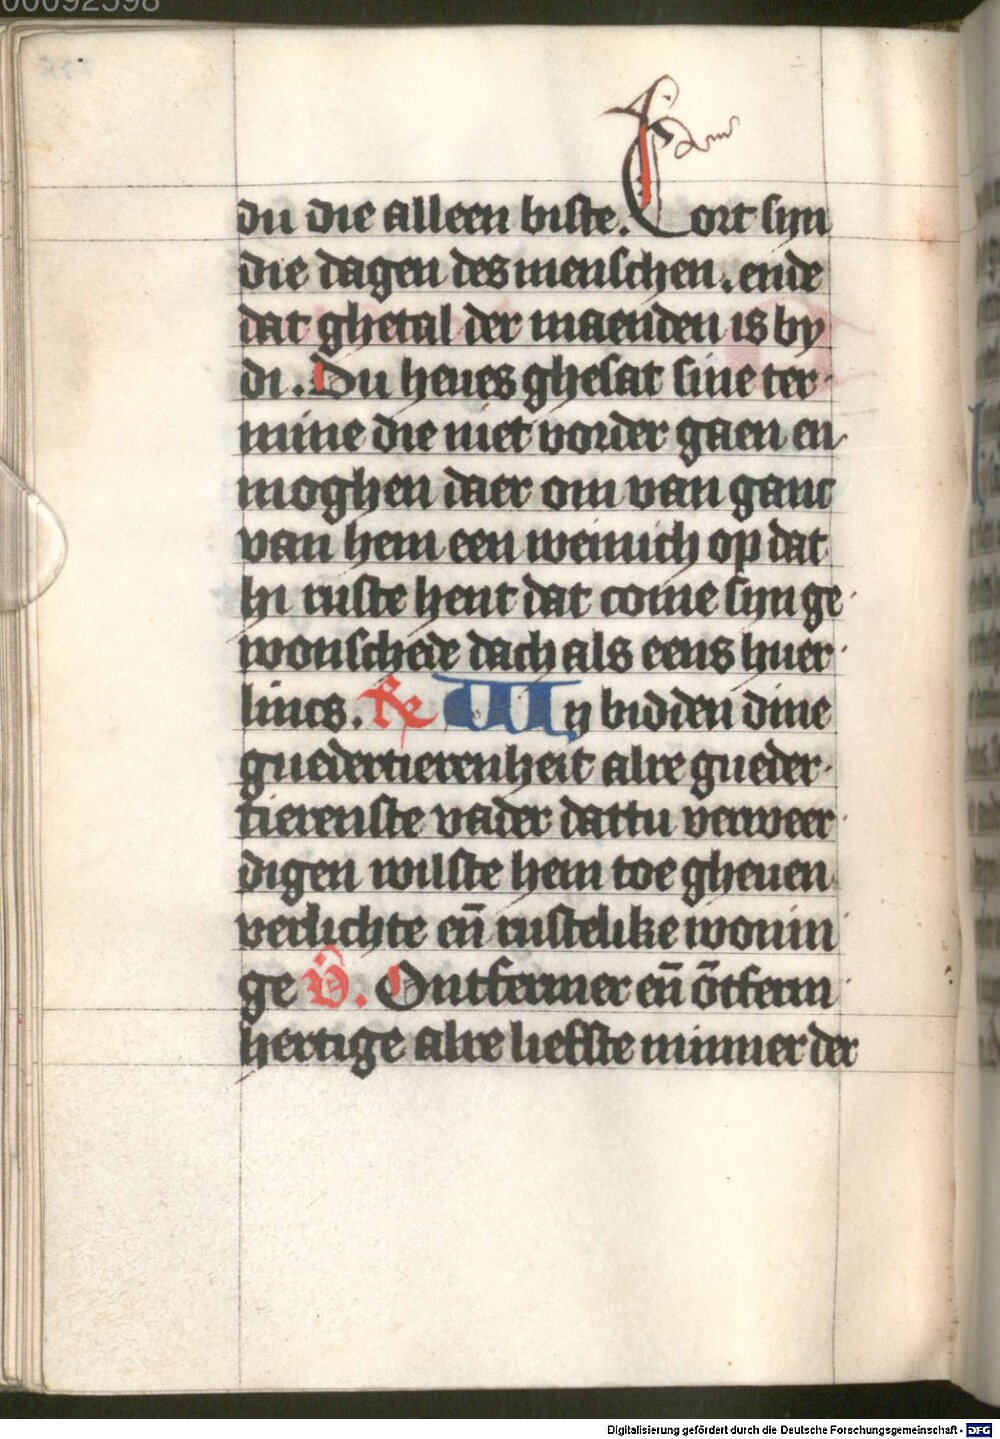 00092598
du die alleen biste. Cort syn
die dagen des menschen. ende
dat ghetal der maenden is by
di. Du heues ghesat sine ter-
mine die niet vorder gaen en
moghen daer om van ganc
van hem een weinich op dat
hi ruste hent dat come syn ge-
wonschede dach als eens huer-
lincs. R Wy bidden dine
guedertierenheit alre gueder-
tierenste vader dattu verweer-
digen wilste hem toe gheuen
verlichte en̄ rustelike wonin-
ge V̄. Ontfermer en̄ ōtferm-
hertige alre liefste minner der
Digitalisierung gefördert durch die Deutsche Forschungsgemeinschaft - DFG